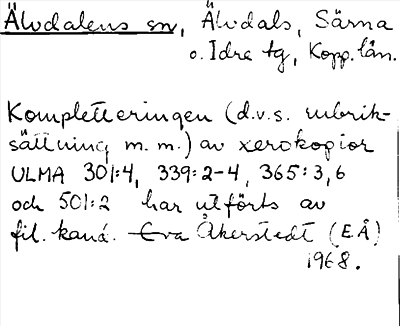 Älvdalens sn, Älvdals, Särna
o. Idre tg, Kopp. län.
Kompletteringen (d.v.s. rubrik-
sättning m. m.) av xerokopior
ULMA 301:4, 339:2-4, 365:3,6
och 501:2 har utförts av
fil. kand. Eva Åkerstedt (EÅ)
1968.